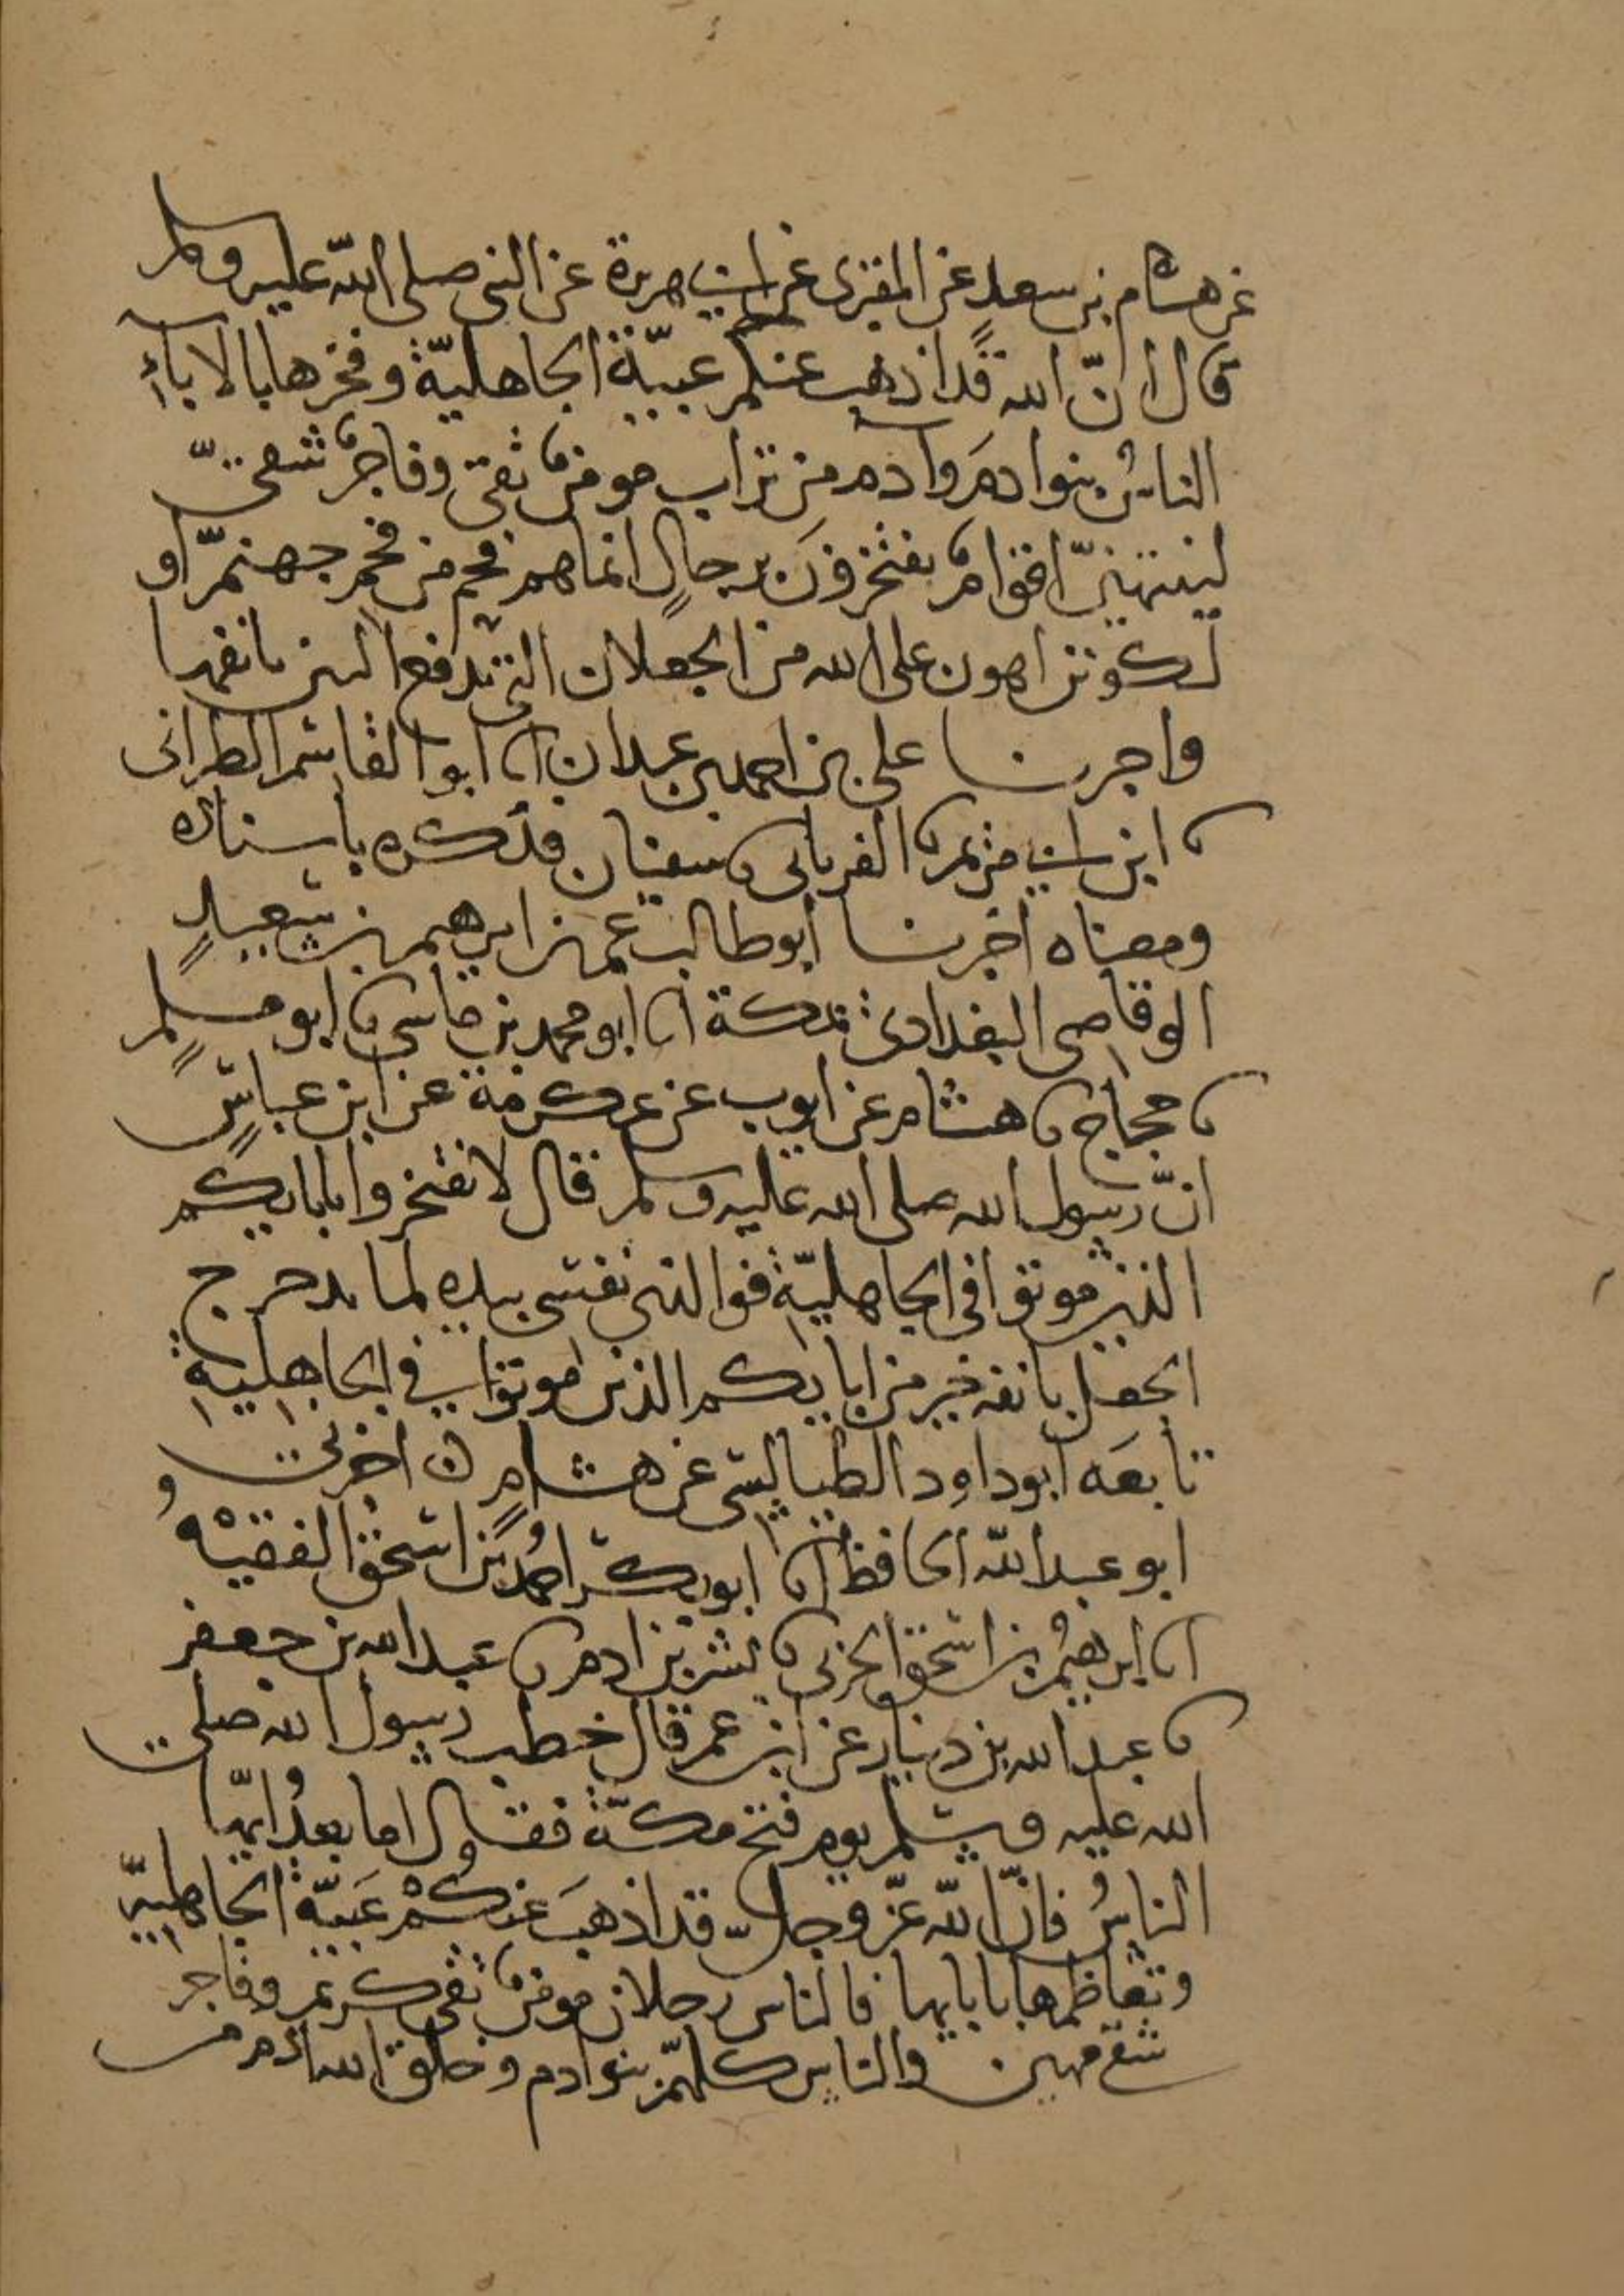 عن هشام بن سعد عن المقبرى عن ابى هريرة عن النبى صلى الله عليه وسلم
قال انّ الله قد اذهب عنكم عبيّة الجاهليّة وفخرها بالاباء
الناس بنوا ادم وادم من تراب مومنٌ تقى وفاجرٌ شقىّ
لينتهينّ اقوامٌ يفتخرونَ برجالٍ انما هم فحم من فحم جهنّم او
ليكونن اهون على الله من الجعلان التى تدفع النتن بانفها
واخبرنا على بن احمد بن عبدان انا ابو القاسم الطبرانى
نا ابن ابى مريم نا الفريابى نا سفيان فذكره باسناده
ومعناه اخبرنا ابو طالب عمر بن ابرهيم بن سعيدٍ
الوقاصى البغدادى بمكة انا ابو محمد بن ماسى نا ابو مسلمٍ
نا حجاج نا هشام عن ايوب عن عكرمة عن ابن عباسٍ
انّ رسول الله صلى الله عليه وسلم قال لا تفتخروا بابايكم
الذين موتوا فى الجاهليّة فوالذى نفسى بيده لما يدحرج
الجعل بانفه خير من ابايكم الذين موتوا فى الجاهلية
تابعَه ابو داود الطيالسى عن هشامٍ ن اخبرنى
ابو عبد الله الحافظ انا ابو بكر احمدُ بن اسحق الفقيهُ
انا ابرهيم بن اسحق الحربى نا بشر بن ادم نا عبد الله بن جعفر
نا عبد الله بن دينار عن ابن عمر قال خطب رسول الله صلى
الله عليه وسلم يوم فتح مكّة فقال اما بعدُ ايّها
الناسُ فانّ الله عزّ وجلّ قد اذهبَ عنكُمْ عَبيّة الجاهليّة
وتعاظمها بابايها فالناس رجلان مومنٌ تقى كريم وفاجر
شقى مهين والناس كلهم بنوا ادم وخلق الله ادم من